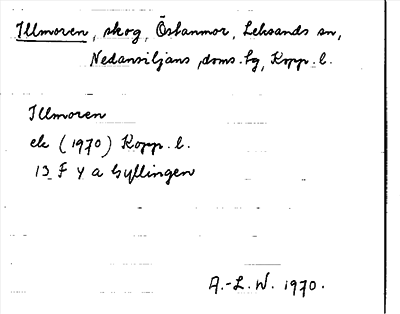 Illmoren, skog, Östanmor, Leksands sn,
Nedansiljans doms.hg, Kopp. l.
Illmoren
ek (1970) Kopp. l.
13 F 4 a Gyllingen
A.-L. W. 1970.